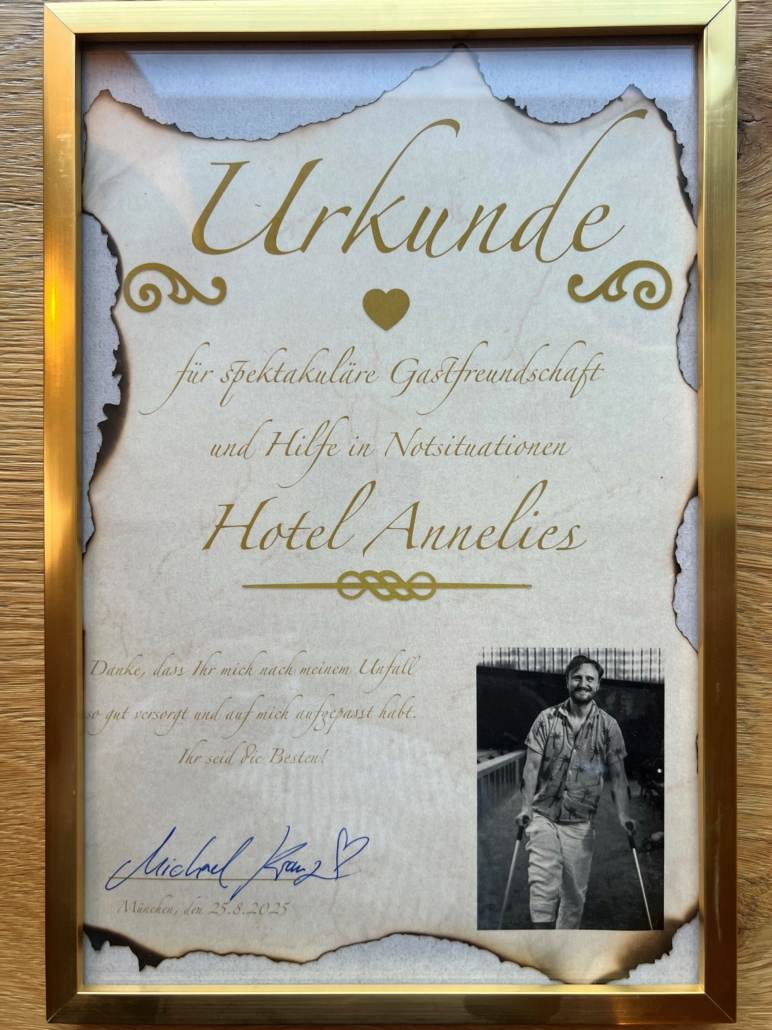 Urkunde
für spektakuläre Gastfreundschaft
und Hilfe in Notsituationen
Hotel Annelies
Danke, dass Ihr mich nach meinem Unfall
so gut versorgt und auf mich aufgepasst habt.
Ihr seid die Besten!
Michael Kranz
München, den 25.8.2025